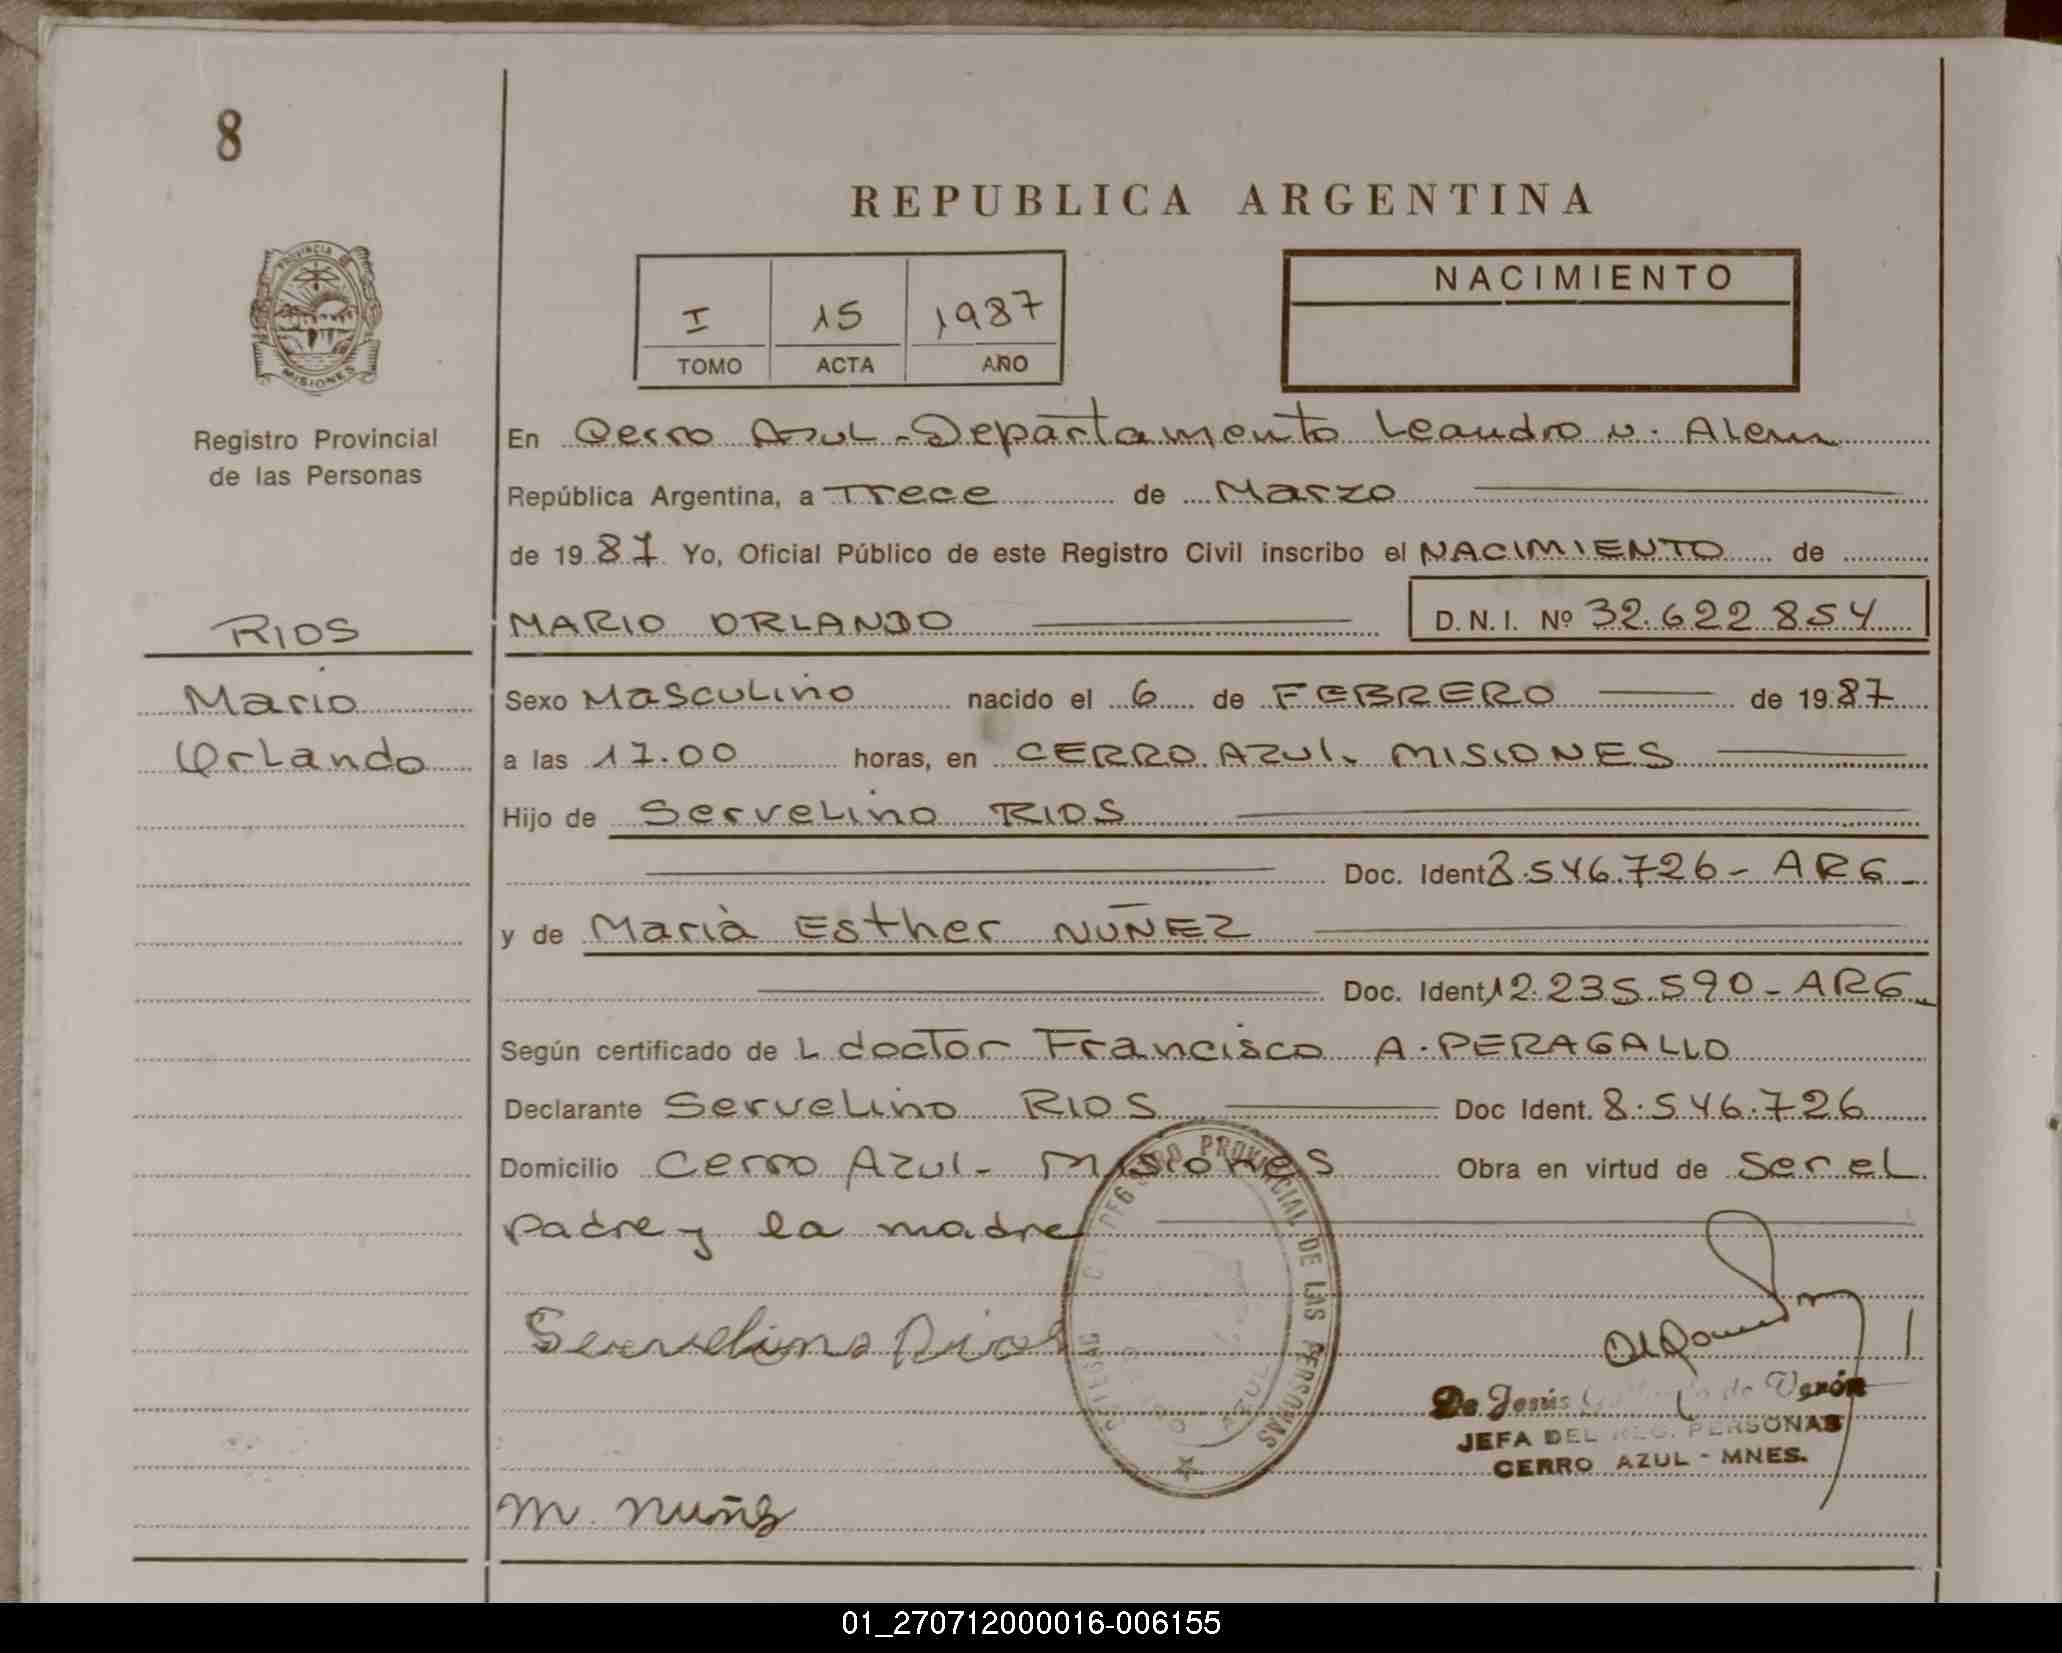 8
REPUBLICA ARGENTINA
PROVINCIA
MISIONES
Registro Provincial
de las Personas
I 15 1987
TOMO ACTA AÑO
NACIMIENTO
En Cerro Azul - Departamento Leandro N. Alem
República Argentina, a Trece de Marzo
de 1987 Yo, Oficial Público de este Registro Civil inscribo el NACIMIENTO de
RIOS
MARIO ORLANDO D.N.I. Nº 32.622.854
Mario
Sexo Masculino nacido el 6 de FEBRERO de 1987
Orlando
a las 17.00 horas, en CERRO AZUL. MISIONES
Hijo de Servelino RIOS
Doc. Ident 8.546.726 - ARG -
y de Maria Esther NUÑEZ
Doc. Ident 12.235.590 - ARG -
Según certificado de L doctor Francisco A. PERAGALLO
Declarante Servelino RIOS Doc Ident. 8.546.726
Domicilio Cerro Azul - Misiones Obra en virtud de ser el
padre y la madre
Servelino Rios
REGISTRO PROVINCIAL DE LAS PERSONAS
AZUL
De Jesús de Verón
JEFA DEL REG. PERSONAS
CERRO AZUL - MNES.
M. Nuñez
01_270712000016-006155